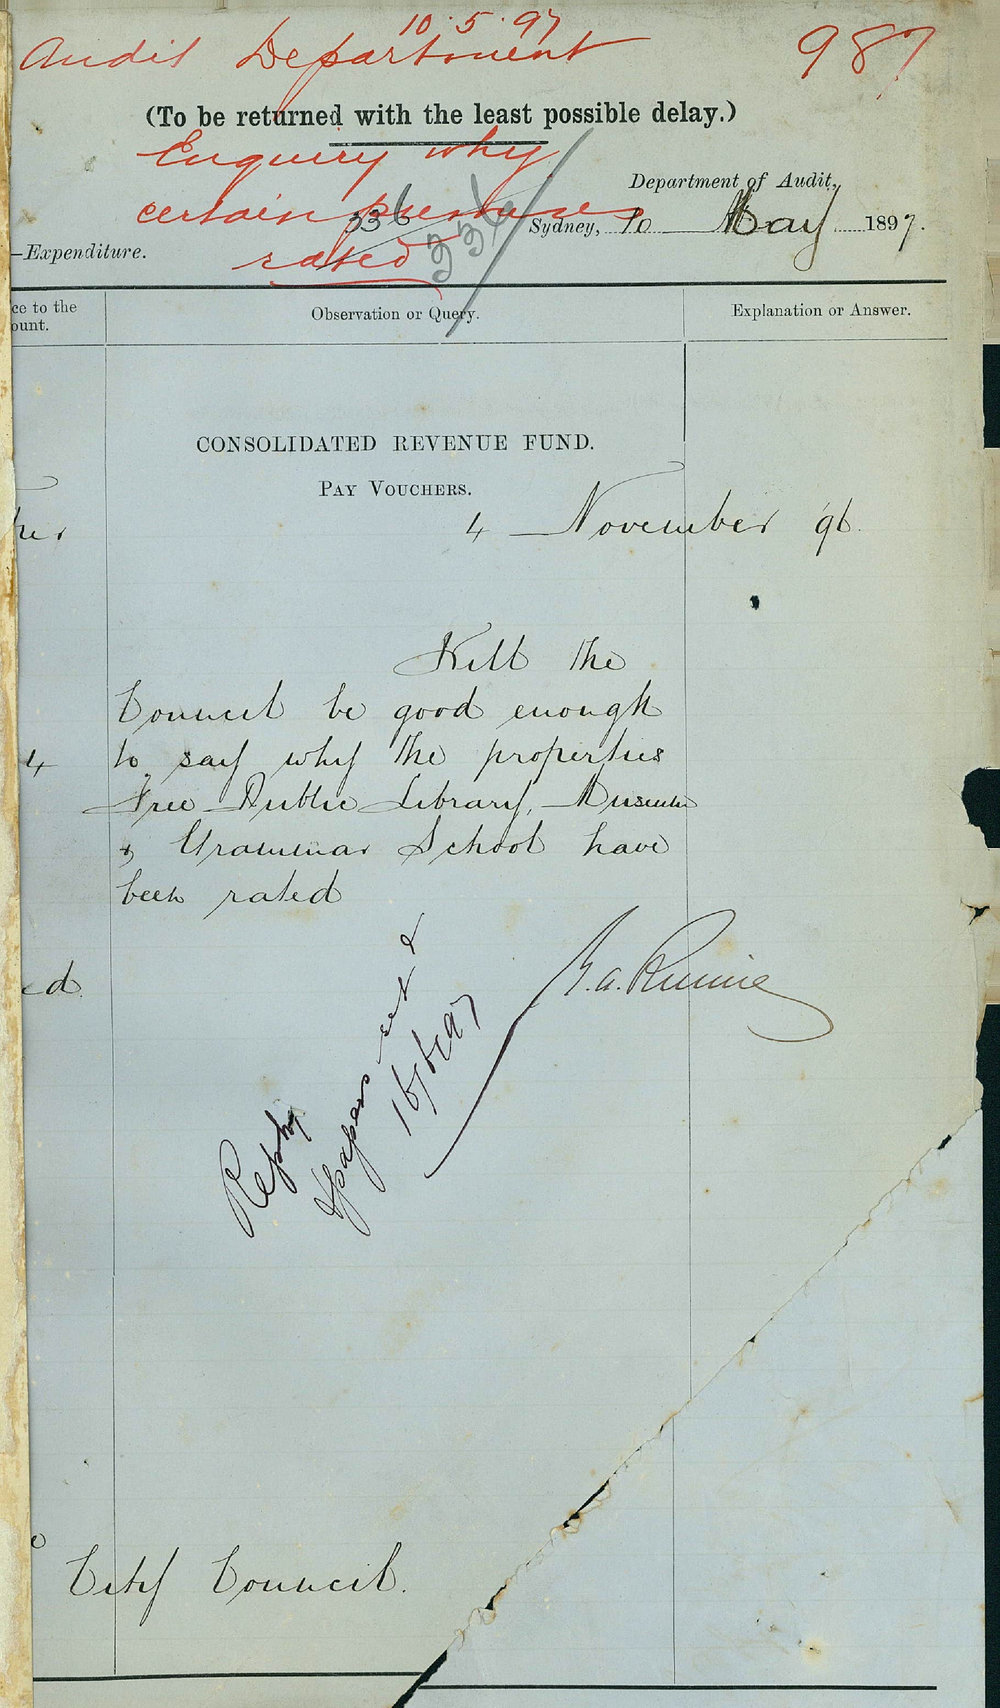 10.5.97
Audit Department 987
(To be returned with the least possible delay.)
Enquiry why
Department of Audit,
certain premises
336 336
Sydney, 10 May 1897.
—Expenditure.
rated
ce to the
ount.
Observation or Query.
Explanation or Answer.
CONSOLIDATED REVENUE FUND.
PAY VOUCHERS.
4 November 96.
Will the
Council be good enough
4 to say why the properties
Free Public Library, Museum
& Grammar School have
been rated
ed
Reply
& papers
16/6/97
City Council.